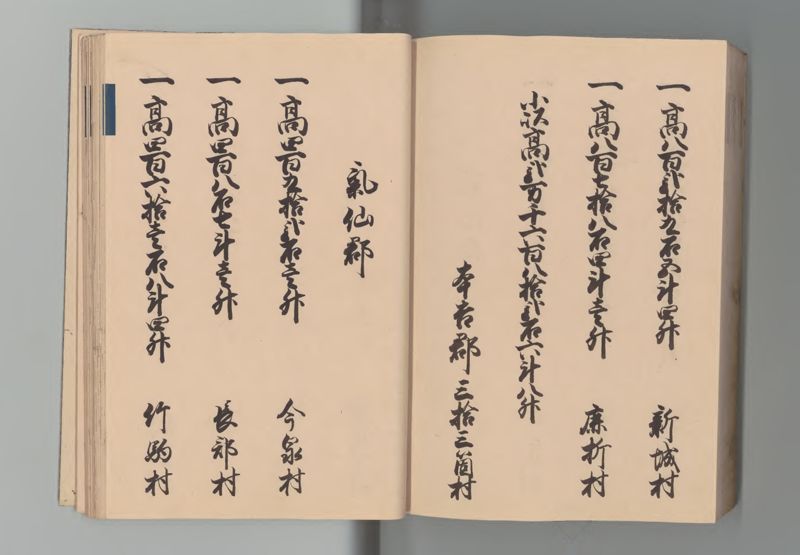 一高八百弐拾九石五斗四升 新城村
一高八百七拾八石四斗壱升 廉折村
小以高弐万千六百八拾弐石六斗八升
本吉郡 三拾三箇村
気仙郡
一高四百九拾弐石壱升 今泉村
一高四百八石七斗壱升 長部村
一高四百六拾壱石八斗四升 竹駒村